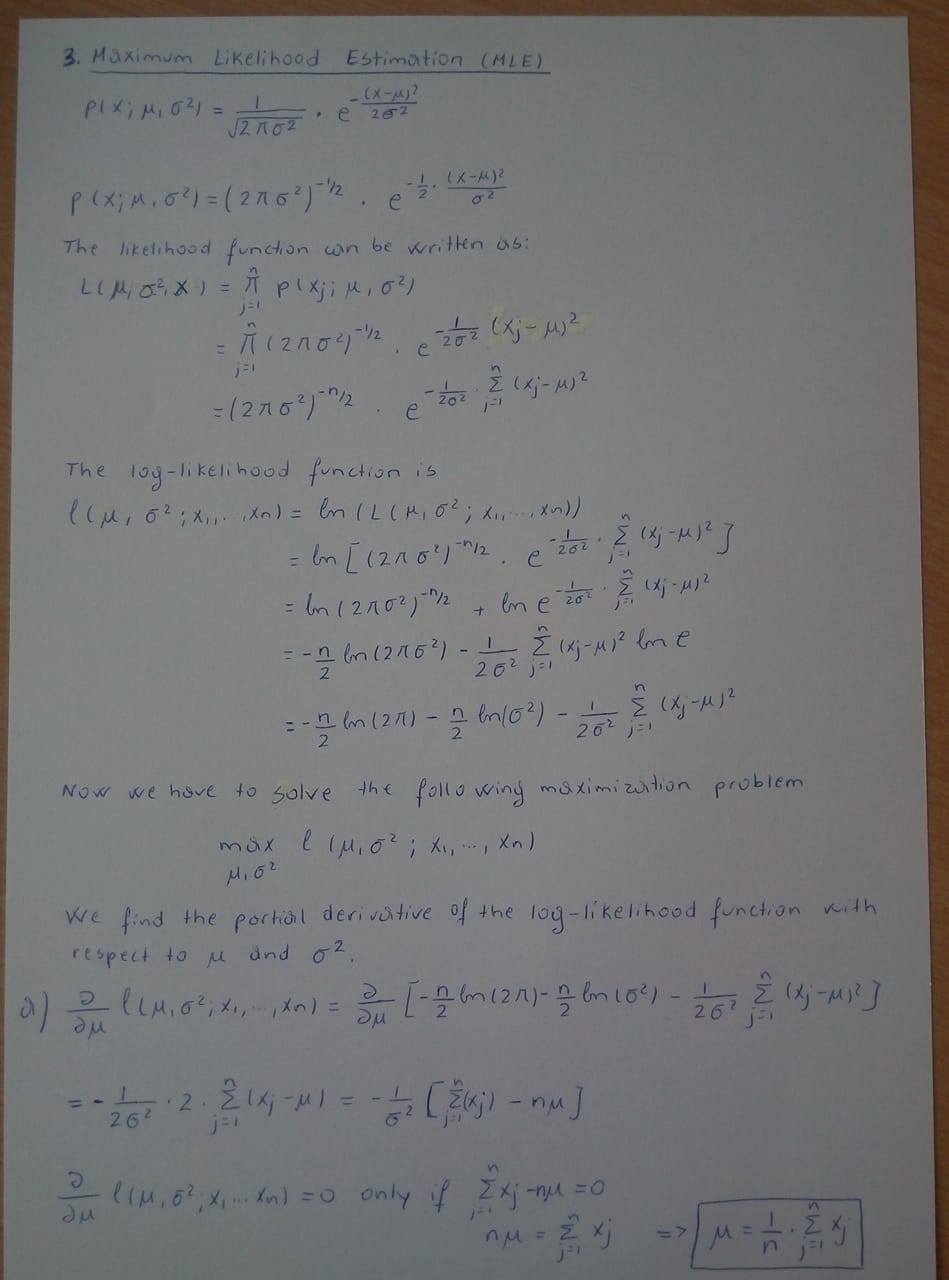 3. Maximum Likelihood Estimation (MLE)
p(x; μ, σ²) = 1/√(2πσ²) · e^(-(x-μ)²/(2σ²))
p(x; μ, σ²) = (2πσ²)^(-1/2) · e^(-1/2 · (x-μ)²/σ²)
The likelihood function can be written as:
L(μ, σ², x) = ∏_{j=1}^{n} p(xj; μ, σ²)
= ∏_{j=1}^{n} (2πσ²)^(-1/2) · e^(-1/(2σ²) (xj-μ)²)
= (2πσ²)^(-n/2) · e^(-1/(2σ²) · ∑_{j=1}^{n} (xj-μ)²)
The log-likelihood function is
l(μ, σ²; x1, ..., xn) = ln(L(μ, σ²; x1, ..., xn))
= ln[(2πσ²)^(-n/2) · e^(-1/(2σ²) · ∑_{j=1}^{n} (xj-μ)²)]
= ln(2πσ²)^(-n/2) + ln e^(-1/(2σ²) · ∑_{j=1}^{n} (xj-μ)²)
= -n/2 ln(2πσ²) - 1/(2σ²) ∑_{j=1}^{n} (xj-μ)² ln e
= -n/2 ln(2π) - n/2 ln(σ²) - 1/(2σ²) ∑_{j=1}^{n} (xj-μ)²
Now we have to solve the following maximization problem
max l(μ, σ²; x1, ..., xn)
μ, σ²
We find the partial derivative of the log-likelihood function with
respect to μ and σ².
a) ∂/∂μ l(μ, σ²; x1, ..., xn) = ∂/∂μ [-n/2 ln(2π) - n/2 ln(σ²) - 1/(2σ²) ∑_{j=1}^{n} (xj-μ)²]
= -1/(2σ²) · 2 · ∑_{j=1}^{n} (xj-μ) = -1/σ² [∑_{j=1}^{n} (xj) - nμ]
∂/∂μ l(μ, σ²; x1 ... xn) = 0 only if ∑_{j=1}^{n} xj - nμ = 0
nμ = ∑_{j=1}^{n} xj => μ = 1/n · ∑_{j=1}^{n} xj